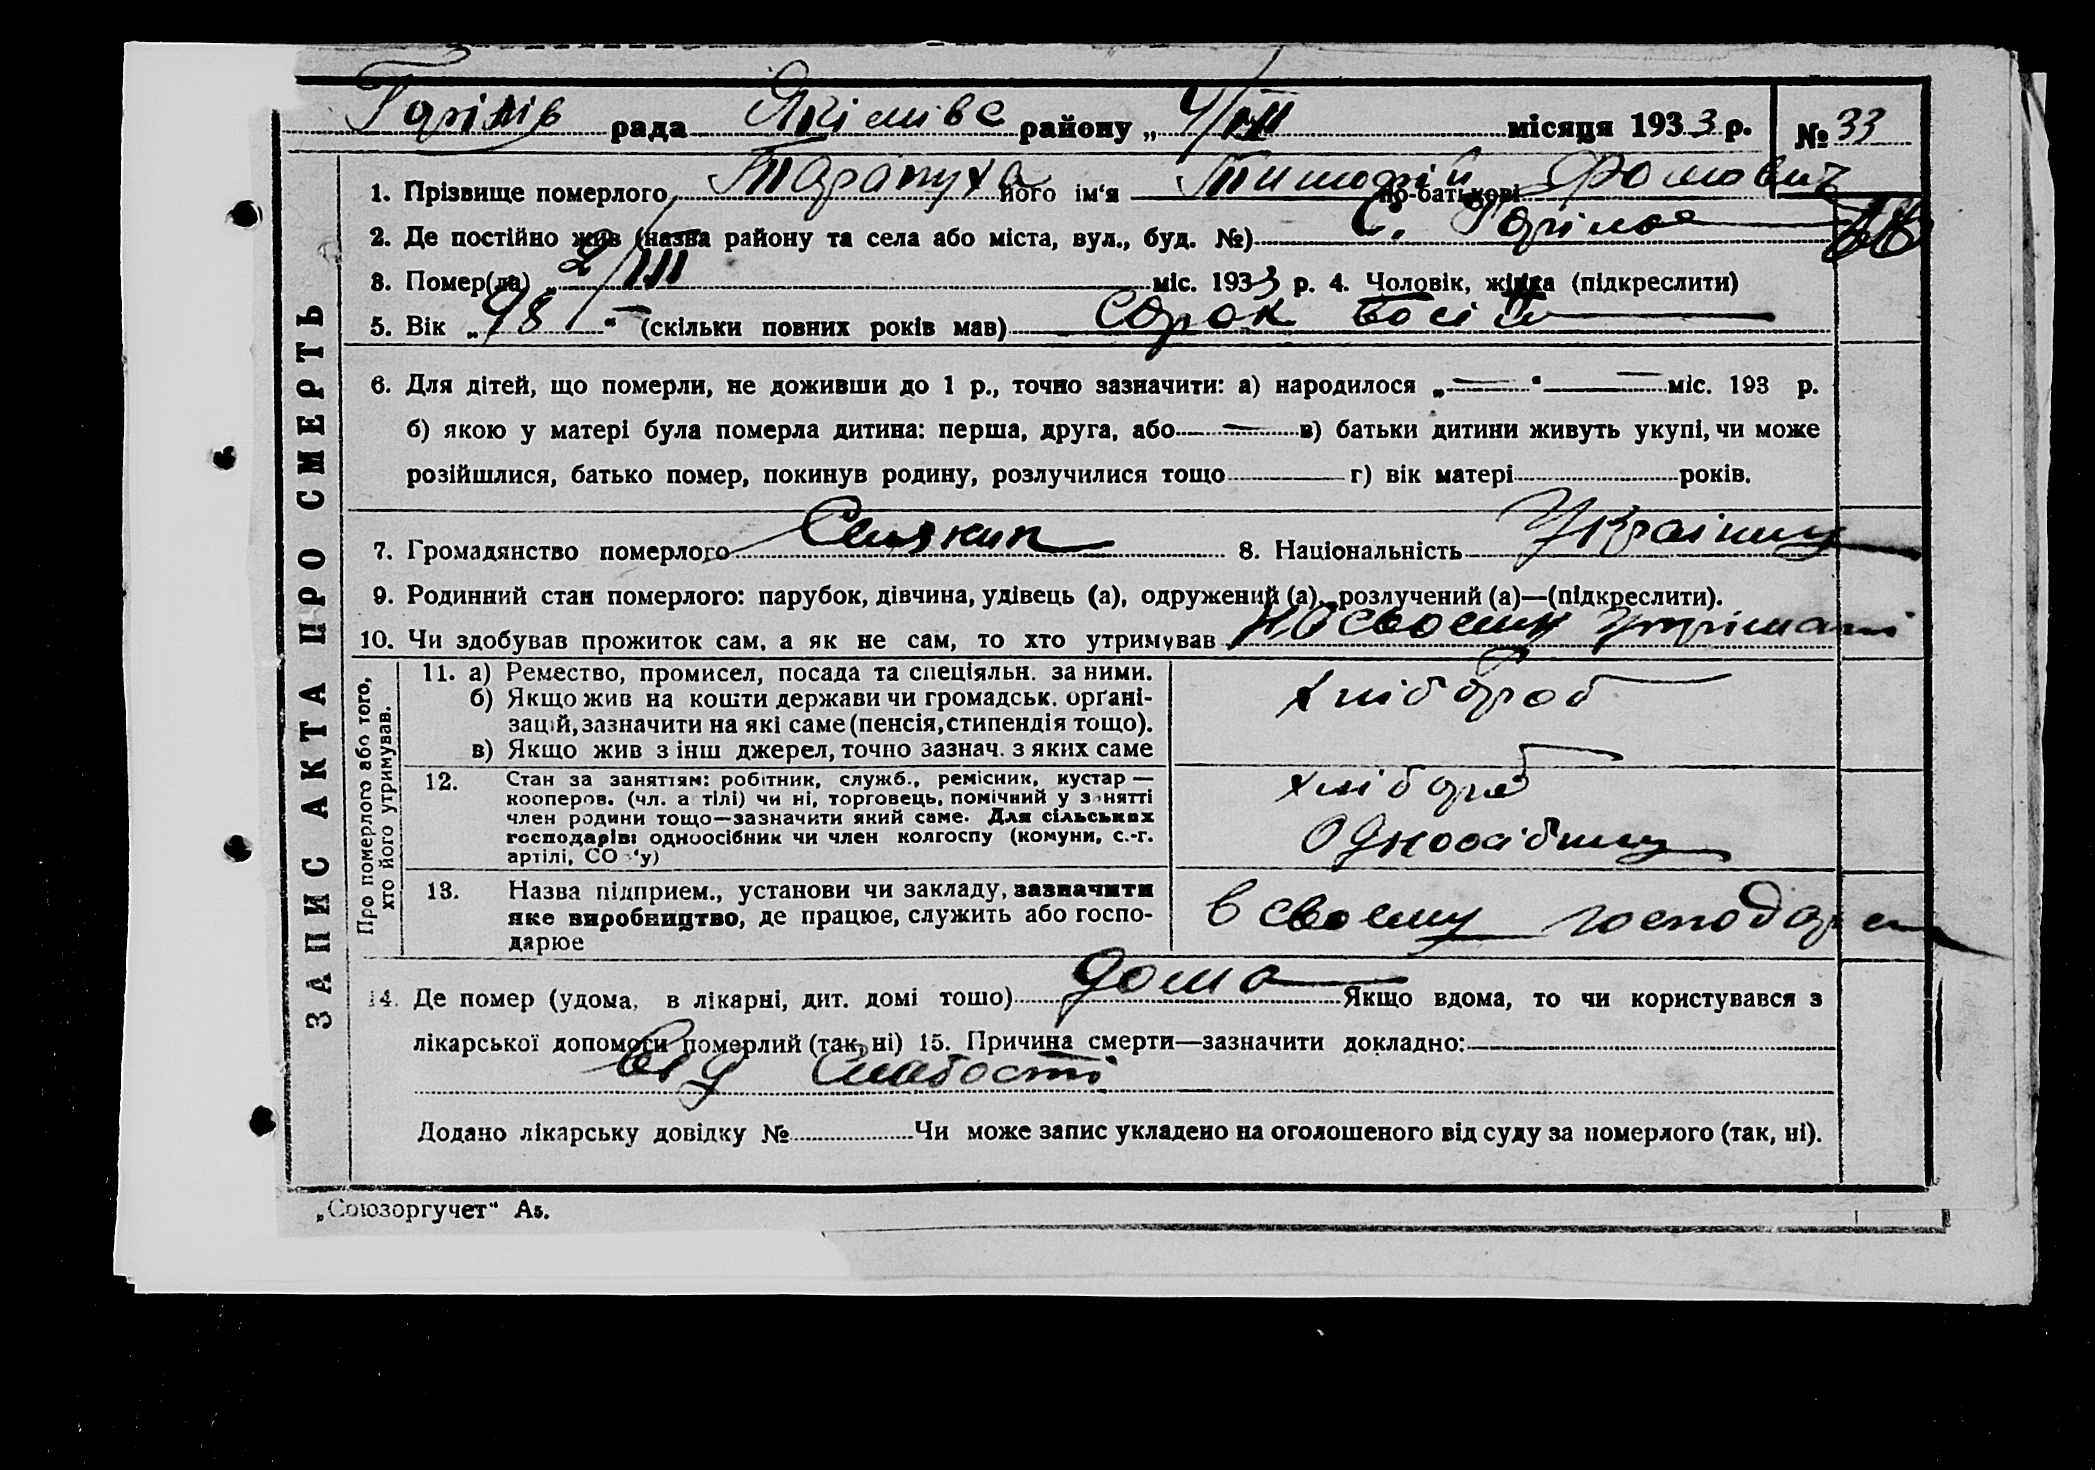 Горілів рада Якімівс району „ 4/III місяця 1933 р. № 33
1. Прізвище померлого Тарапуха його ім‘я Тимофій по-батькові Фомович
2. Де постійно жив (назва району та села або міста, вул., буд. №) С. Горілов
3. Помер(ла) „ 2/III міс. 1933 р. 4. Чоловік, жінка (підкреслити)
5. Вік „ 48 “ (скільки повних років мав) сорок восім
6. Для дітей, що померли, не доживши до 1 р., точно зазначити: а) народилося „ — “ — міс. 193 р.
б) якою у матері була померла дитина: перша, друга, або — в) батьки дитини живуть укупі, чи може
розійшлися, батько помер, покинув родину, розлучилися тощо г) вік матері років.
7. Громадянство померлого Селянин 8. Національність Україниц
9. Родинний стан померлого: парубок, дівчина, удівець (а), одружений (а), розлучений (а)—(підкреслити).
10. Чи здобував прожиток сам, а як не сам, то хто утримував на своєму утрімані
ЗАПИС АКТА ПРО СМЕРТЬ
Про померлого або того,
хто його утримував.
11. а) Ремество, промисел, посада та спеціяльн. за ними.
б) Якщо жив на кошти держави чи громадськ. орґані-
зацій, зазначити на які саме (пенсія, стипендія тощо).
в) Якщо жив з інш джерел, точно зазнач. з яких саме
хлібороб
12. Стан за заняттям: робітник, служб., ремісник, кустар —
кооперов. (чл. артілі) чи ні, торговець, помічний у занятті
член родини тощо—зазначити який саме. Для сільських
господарів: одноосібник чи член колгоспу (комуни, с.-г.
артілі, СО ‘у)
хлібороб
Одноосібниц
13. Назва підприєм., установи чи закладу, зазначити
яке виробництво, де працює, служить або госпо-
дарює
в своєму господар
14. Де помер (удома, в лікарні, дит. домі тощо) дома Якщо вдома, то чи користувався з
лікарської допомоги померлий (так, ні) 15. Причина смерти—зазначити докладно:
від слабості
Додано лікарську довідку № Чи може запис укладено на оголошеного від суду за померлого (так, ні).
„Союзоргучет“ А5.